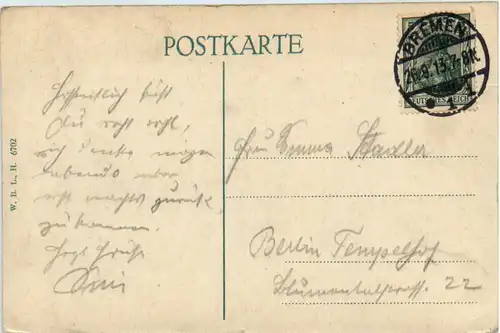 POSTKARTE
BREMEN
1
DEUTSCHES REICH
W. B. L., H. 6702
Hoffentlich bist
Du recht wohl,
ich denke
abends
erst nachts zurück
zu kommen.
Herzl. Grüße
Frau Emma Stadler
Berlin Tempelhof
Blumenthalstrasse. 22